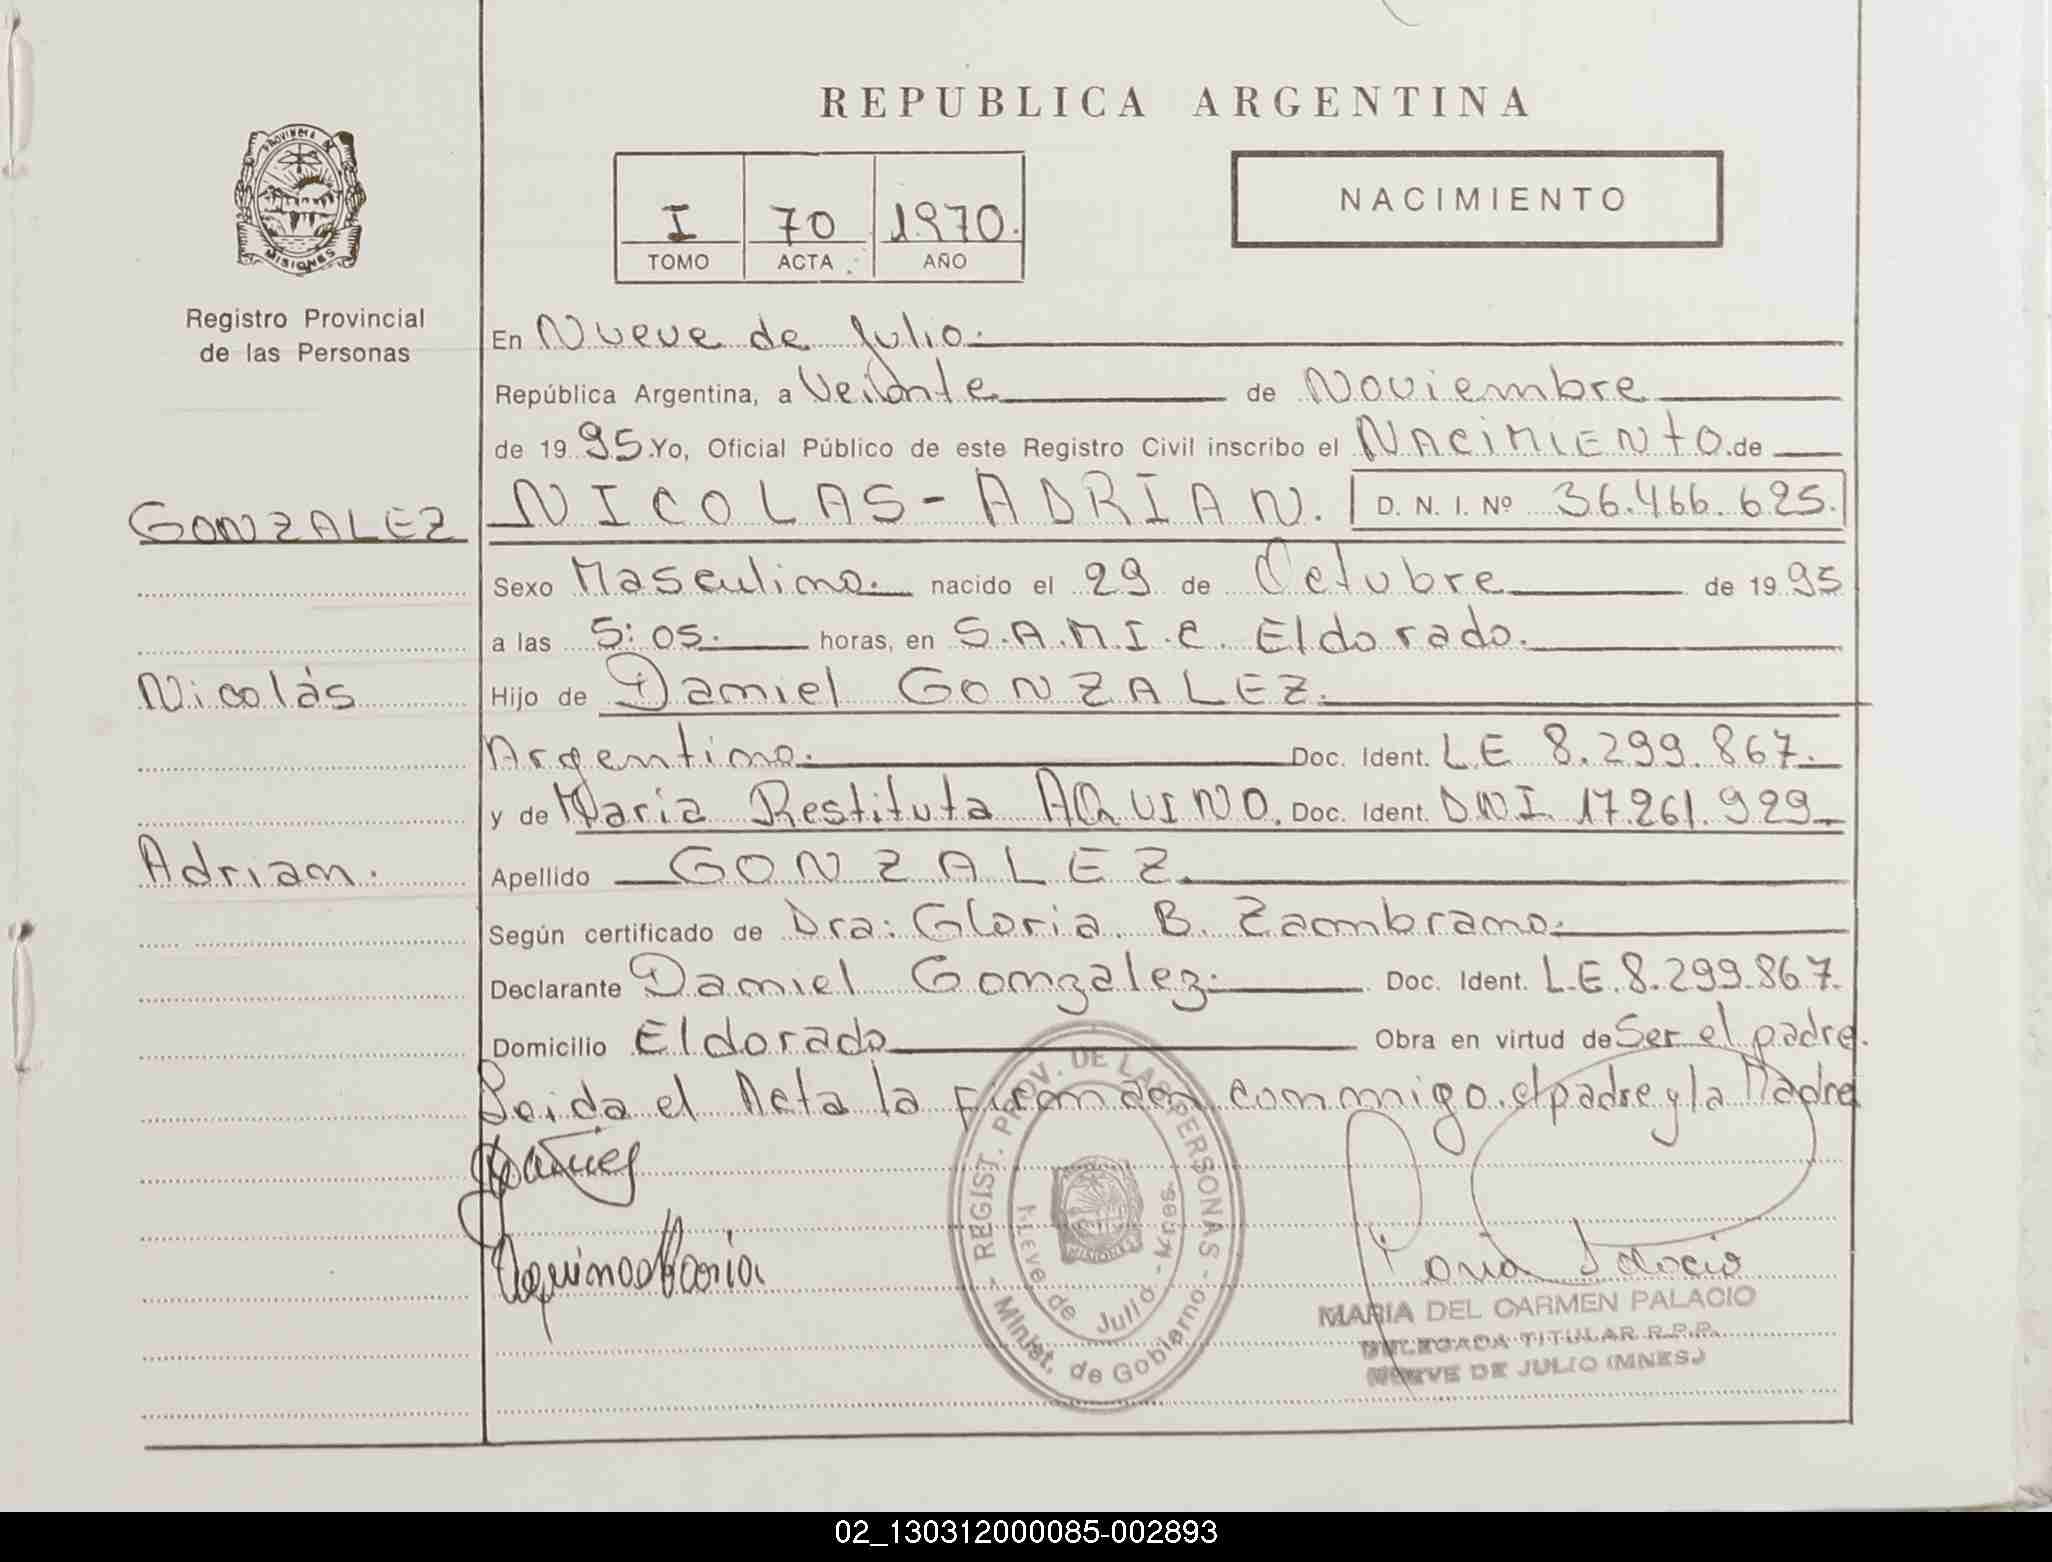 REPUBLICA ARGENTINA
PROVINCIA DE MISIONES
Registro Provincial
de las Personas
I 70 1970.
TOMO ACTA AÑO
NACIMIENTO
En Nueve de Julio.
República Argentina, a Veinte de Noviembre
de 1995. Yo, Oficial Público de este Registro Civil inscribo el NACIMIENTO de
GONZALEZ NICOLAS-ADRIAN. D. N. I. Nº 36.466.625.
Sexo Masculino. nacido el 29 de Octubre de 1995
a las 5:05. horas, en S.A.M.I.C. Eldorado.
Nicolás Hijo de Daniel GONZALEZ.
Argentino. Doc. Ident. LE 8.299.867.
y de María Restituta AQUINO. Doc. Ident. DNI. 17.261.929
Adrian. Apellido GONZALEZ.
Según certificado de Dra: Gloria B. Zambrano.
Declarante Daniel Gonzalez. Doc. Ident. L.E. 8.299.867.
Domicilio Eldorado Obra en virtud de Ser el padre.
Leida el Acta la Firman con conmigo. el padre y la Madre
Aquino Maria
REGIST. PROV. DE LAS PERSONAS - Minist. de Gobierno -
Nueve de Julio - Mnes.
MISIONES
MARIA DEL CARMEN PALACIO
DELEGADA TITULAR R.P.P.
NUEVE DE JULIO (MNES)
02_130312000085-002893